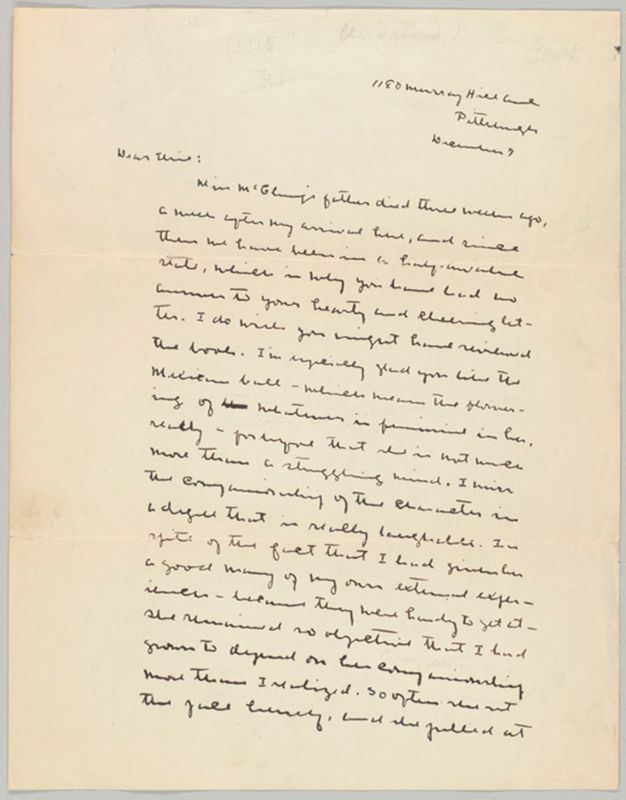 1180 Murray Hill Ave
Pittsburgh
December 7
Dear Elsie:
Miss McClung's father died three weeks ago,
a week after my arrival here, and since
then we have been in a half-awake
state, which is why you have had no
answer to your hearty and cheering let-
ter. I do wish you might have reviewed
the book. I'm especially glad you like the
Mexican ball - which means the flower-
ing of whatever is feminine in her,
really - for before that she is not much
more than a struggling mind. I miss
the companionship of the character in
a degree that is really laughable. In
spite of the fact that I had given her
a good many of my own external exper-
iences - because they were handy to get at -
she remained so objective that I had
grown to depend on her companionship
more than I realized. So often she set
the pace bravely, and she pulled at